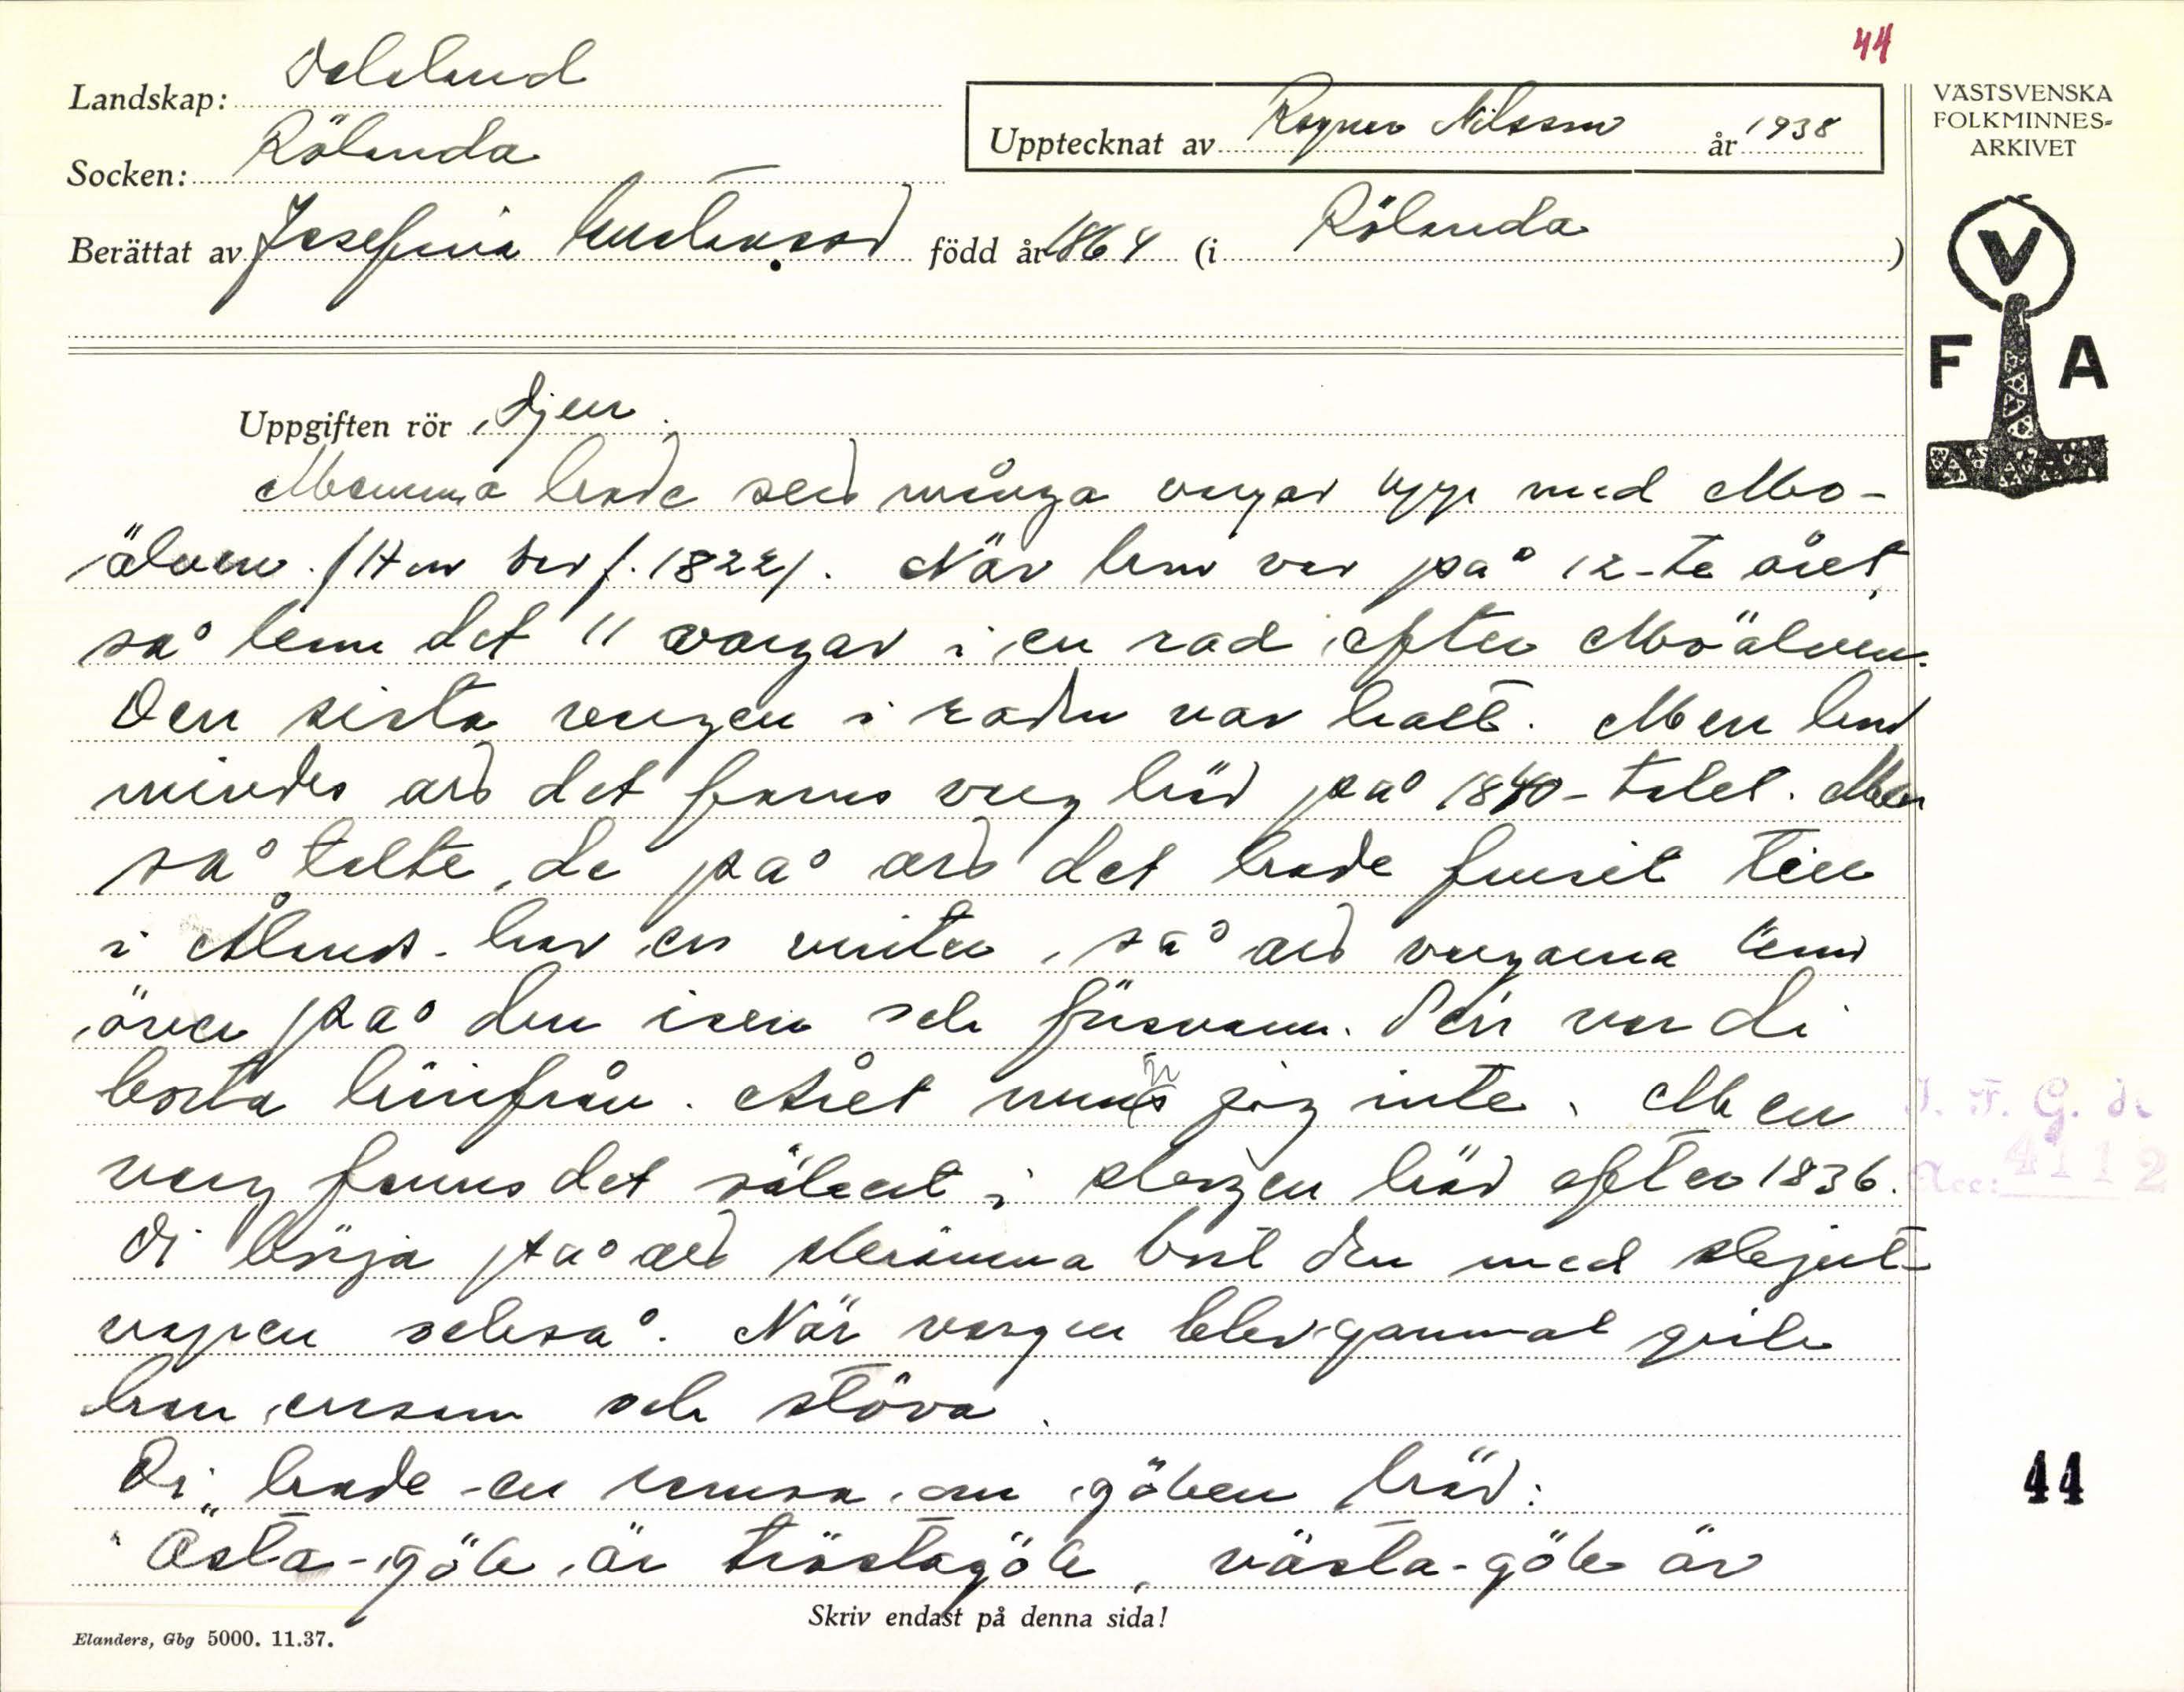 44
Landskap: Dalsland
Socken: Rölanda
Upptecknat av Ragnar Nilsson år 1938
Berättat av Josefina Gustavsson född år 1864 (i Rölanda)
VÄSTSVENSKA
FOLKMINNES-
ARKIVET
V
F A
Uppgiften rör Djur.
Mamma hade sett många vargar uppe med Mo-
älven. (Hon var f. 1822). När hon var på 12-te året,
så kom det 11 vargar i en rad efter Moälven.
Den sista vargen i raden var halt. Men hon
mindes att det fanns varg här på 1840-talet. Men
så talte de på att det hade frusit till
i Ålands-hav en vinter, så att vargarna kom
över på den isen och försvann. Då var di
borta härifrån. Året minns jag inte. Men
varg fanns det säkert i skogen här efter 1836.
Di börja på att skrämma bort den med skjut-
vapen också. När vargen blev gammal gick
han ensam och ströva.
Di hade en ramsa om göken här:
"Östa-gök är tröstagök, västa-gök är
Skriv endast på denna sida!
Elanders, Gbg 5000. 11.37.
I. F. G. 
Acc: 4112
44